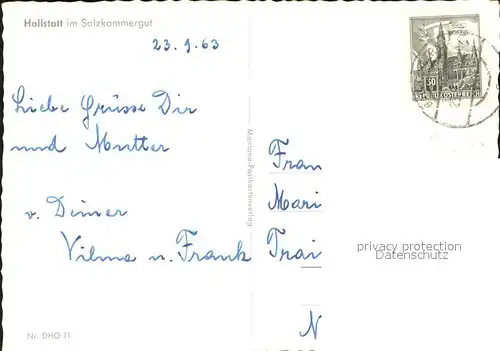 Hallstatt im Salzkammergut
23.9.63
Liebe Grüsse Dir
und Mutter
v. Deiner
Vilma u. Frank
Mariana-Postkartenverlag
Fran
Mari
Trai
N
privacy protection
Datenschutz
Nr. DHO 11